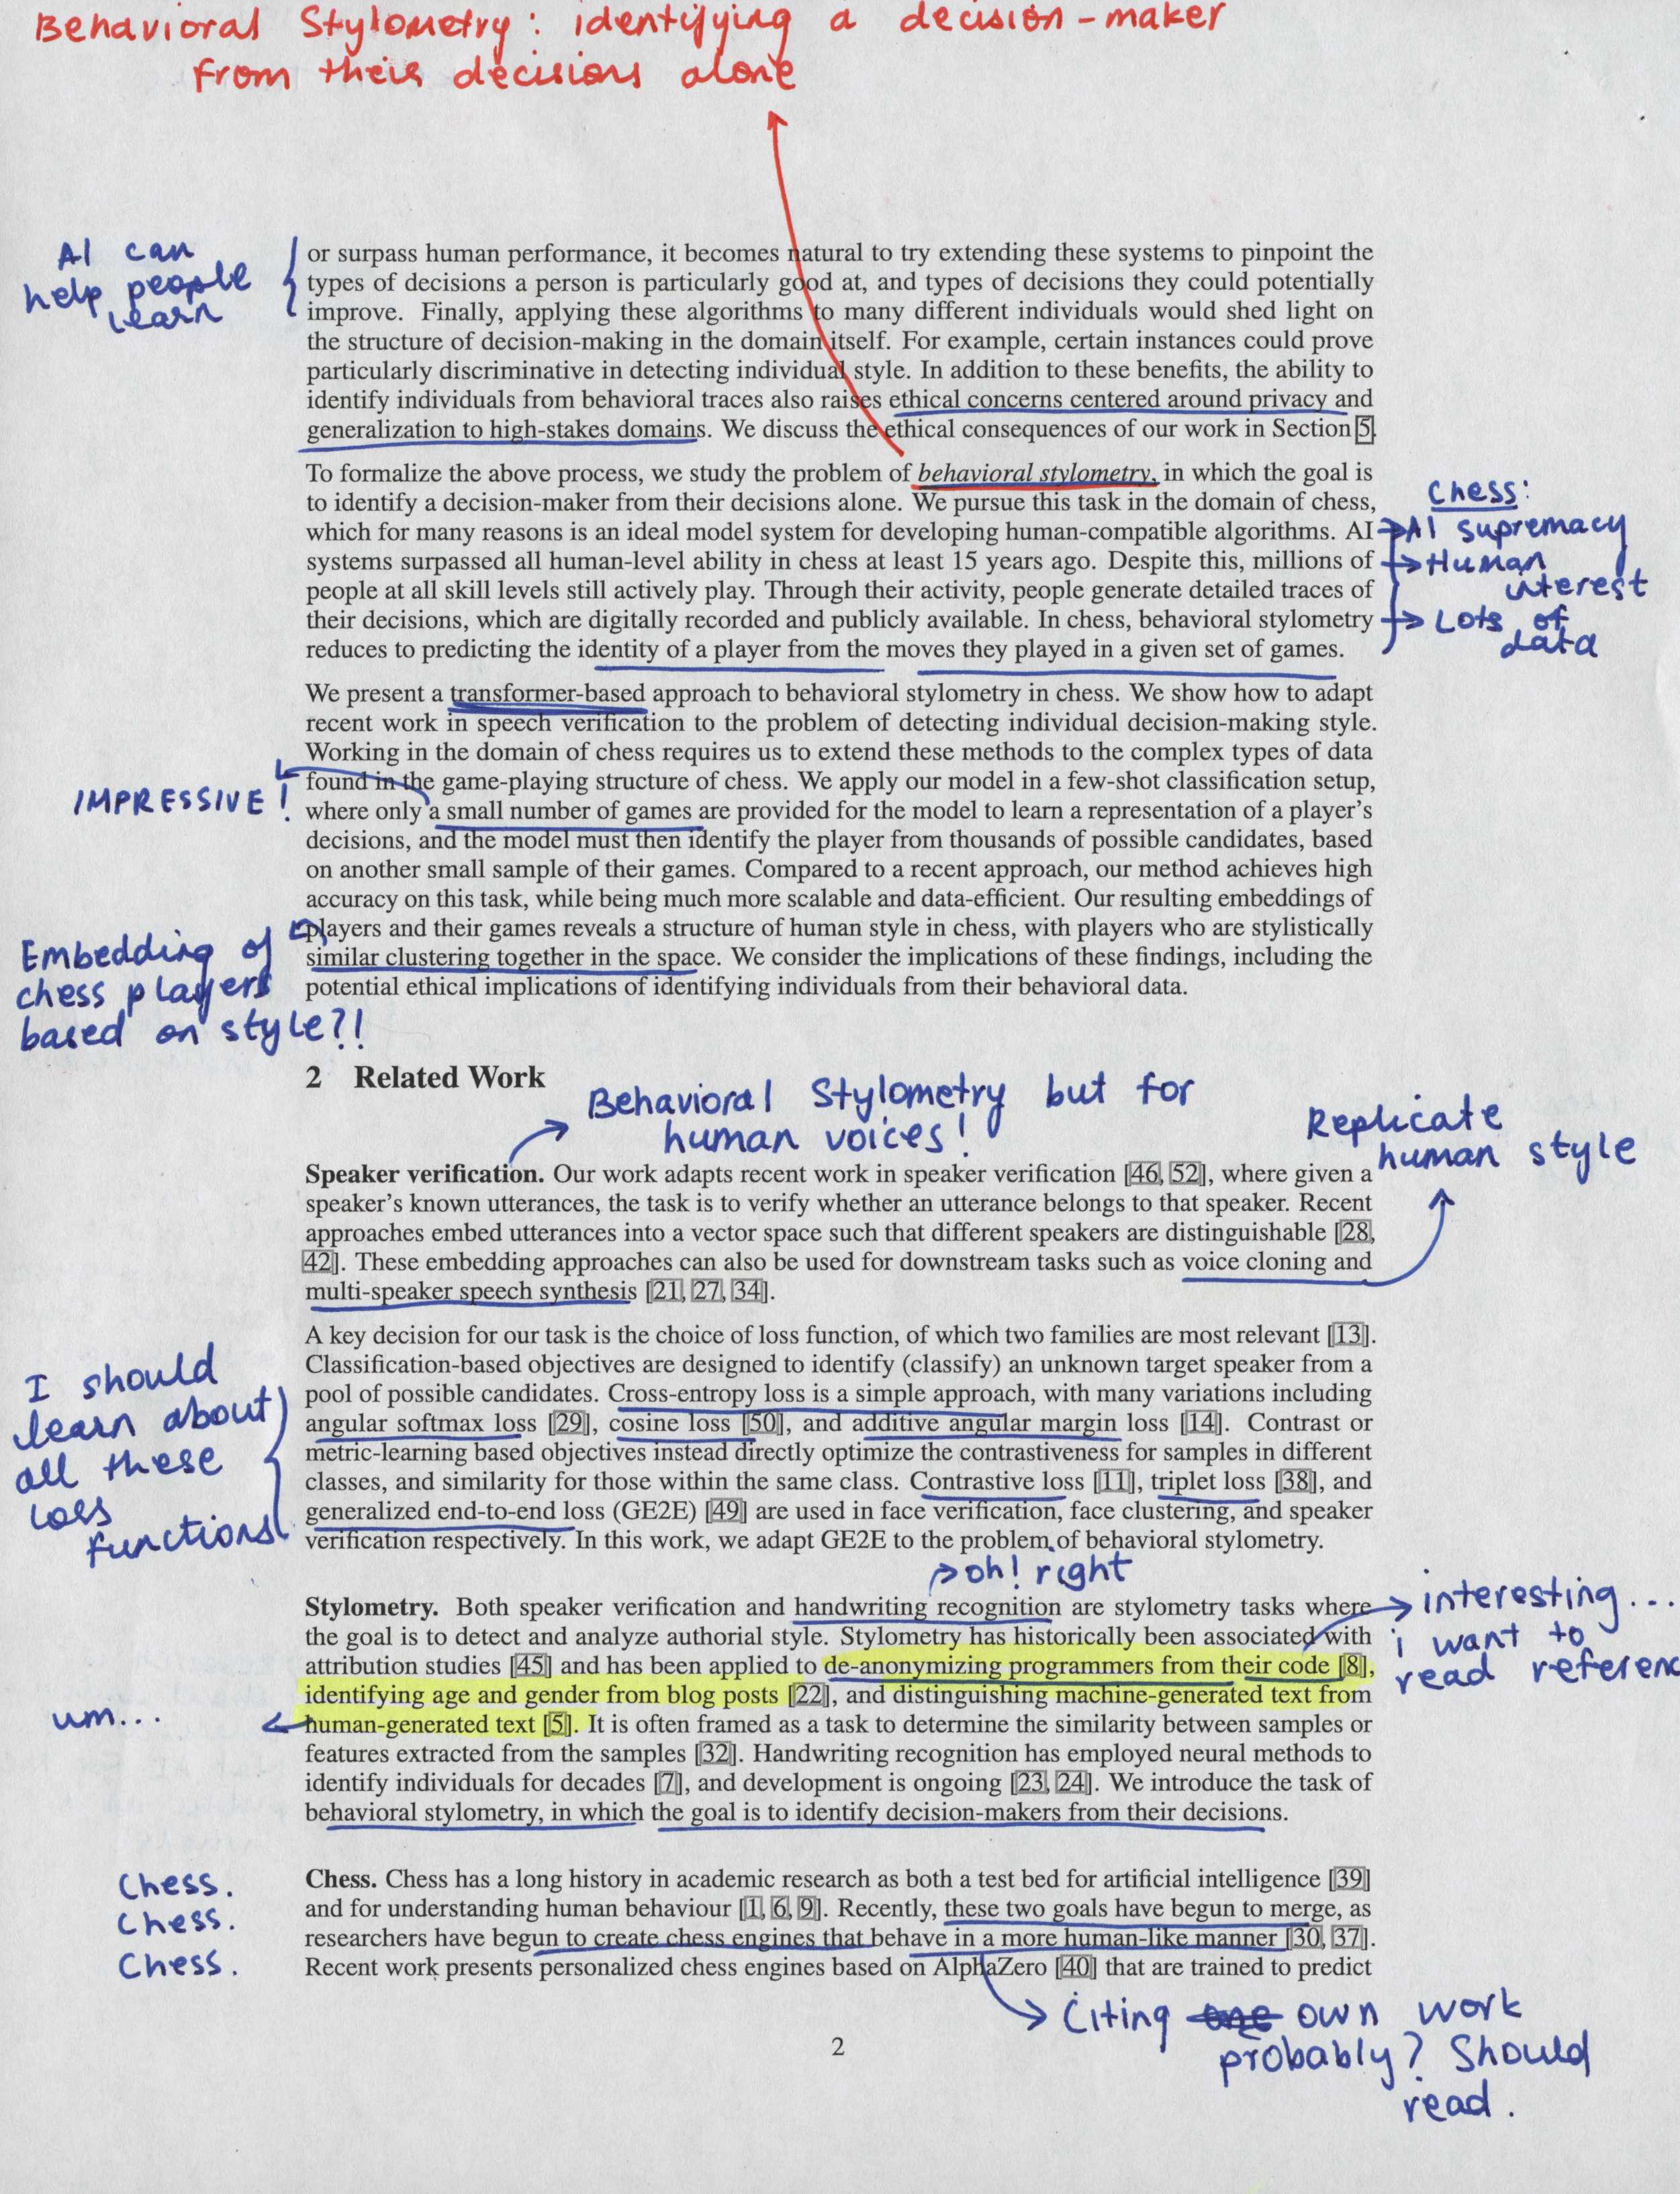 Behavioral Stylometry: identifying a decision-maker
from their decisions alone
AI can
help people
learn
or surpass human performance, it becomes natural to try extending these systems to pinpoint the
types of decisions a person is particularly good at, and types of decisions they could potentially
improve. Finally, applying these algorithms to many different individuals would shed light on
the structure of decision-making in the domain itself. For example, certain instances could prove
particularly discriminative in detecting individual style. In addition to these benefits, the ability to
identify individuals from behavioral traces also raises ethical concerns centered around privacy and
generalization to high-stakes domains. We discuss the ethical consequences of our work in Section 5.
To formalize the above process, we study the problem of behavioral stylometry, in which the goal is
to identify a decision-maker from their decisions alone. We pursue this task in the domain of chess,
which for many reasons is an ideal model system for developing human-compatible algorithms. AI
systems surpassed all human-level ability in chess at least 15 years ago. Despite this, millions of
people at all skill levels still actively play. Through their activity, people generate detailed traces of
their decisions, which are digitally recorded and publicly available. In chess, behavioral stylometry
reduces to predicting the identity of a player from the moves they played in a given set of games.
Chess:
AI supremacy
Human
interest
Lots of
data
We present a transformer-based approach to behavioral stylometry in chess. We show how to adapt
recent work in speech verification to the problem of detecting individual decision-making style.
Working in the domain of chess requires us to extend these methods to the complex types of data
found in the game-playing structure of chess. We apply our model in a few-shot classification setup,
where only a small number of games are provided for the model to learn a representation of a player's
decisions, and the model must then identify the player from thousands of possible candidates, based
on another small sample of their games. Compared to a recent approach, our method achieves high
accuracy on this task, while being much more scalable and data-efficient. Our resulting embeddings of
players and their games reveals a structure of human style in chess, with players who are stylistically
similar clustering together in the space. We consider the implications of these findings, including the
potential ethical implications of identifying individuals from their behavioral data.
IMPRESSIVE!
Embedding of
chess players
based on style?!
2 Related Work
Behavioral Stylometry but for
human voices!
Replicate
human style
Speaker verification. Our work adapts recent work in speaker verification [46, 52], where given a
speaker's known utterances, the task is to verify whether an utterance belongs to that speaker. Recent
approaches embed utterances into a vector space such that different speakers are distinguishable [28,
42]. These embedding approaches can also be used for downstream tasks such as voice cloning and
multi-speaker speech synthesis [21, 27, 34].
A key decision for our task is the choice of loss function, of which two families are most relevant [13].
Classification-based objectives are designed to identify (classify) an unknown target speaker from a
pool of possible candidates. Cross-entropy loss is a simple approach, with many variations including
angular softmax loss [29], cosine loss [50], and additive angular margin loss [14]. Contrast or
metric-learning based objectives instead directly optimize the contrastiveness for samples in different
classes, and similarity for those within the same class. Contrastive loss [11], triplet loss [38], and
generalized end-to-end loss (GE2E) [49] are used in face verification, face clustering, and speaker
verification respectively. In this work, we adapt GE2E to the problem of behavioral stylometry.
I should
learn about
all these
loss
functions
oh! right
Stylometry. Both speaker verification and handwriting recognition are stylometry tasks where
the goal is to detect and analyze authorial style. Stylometry has historically been associated with
attribution studies [45] and has been applied to de-anonymizing programmers from their code [8],
identifying age and gender from blog posts [22], and distinguishing machine-generated text from
human-generated text [5]. It is often framed as a task to determine the similarity between samples or
features extracted from the samples [32]. Handwriting recognition has employed neural methods to
identify individuals for decades [7], and development is ongoing [23, 24]. We introduce the task of
behavioral stylometry, in which the goal is to identify decision-makers from their decisions.
interesting...
i want to
read referenc
um...
Chess.
Chess.
Chess.
Chess. Chess has a long history in academic research as both a test bed for artificial intelligence [39]
and for understanding human behaviour [1, 6, 9]. Recently, these two goals have begun to merge, as
researchers have begun to create chess engines that behave in a more human-like manner [30, 37].
Recent work presents personalized chess engines based on AlphaZero [40] that are trained to predict
Citing own work
probably? Should
read.
2